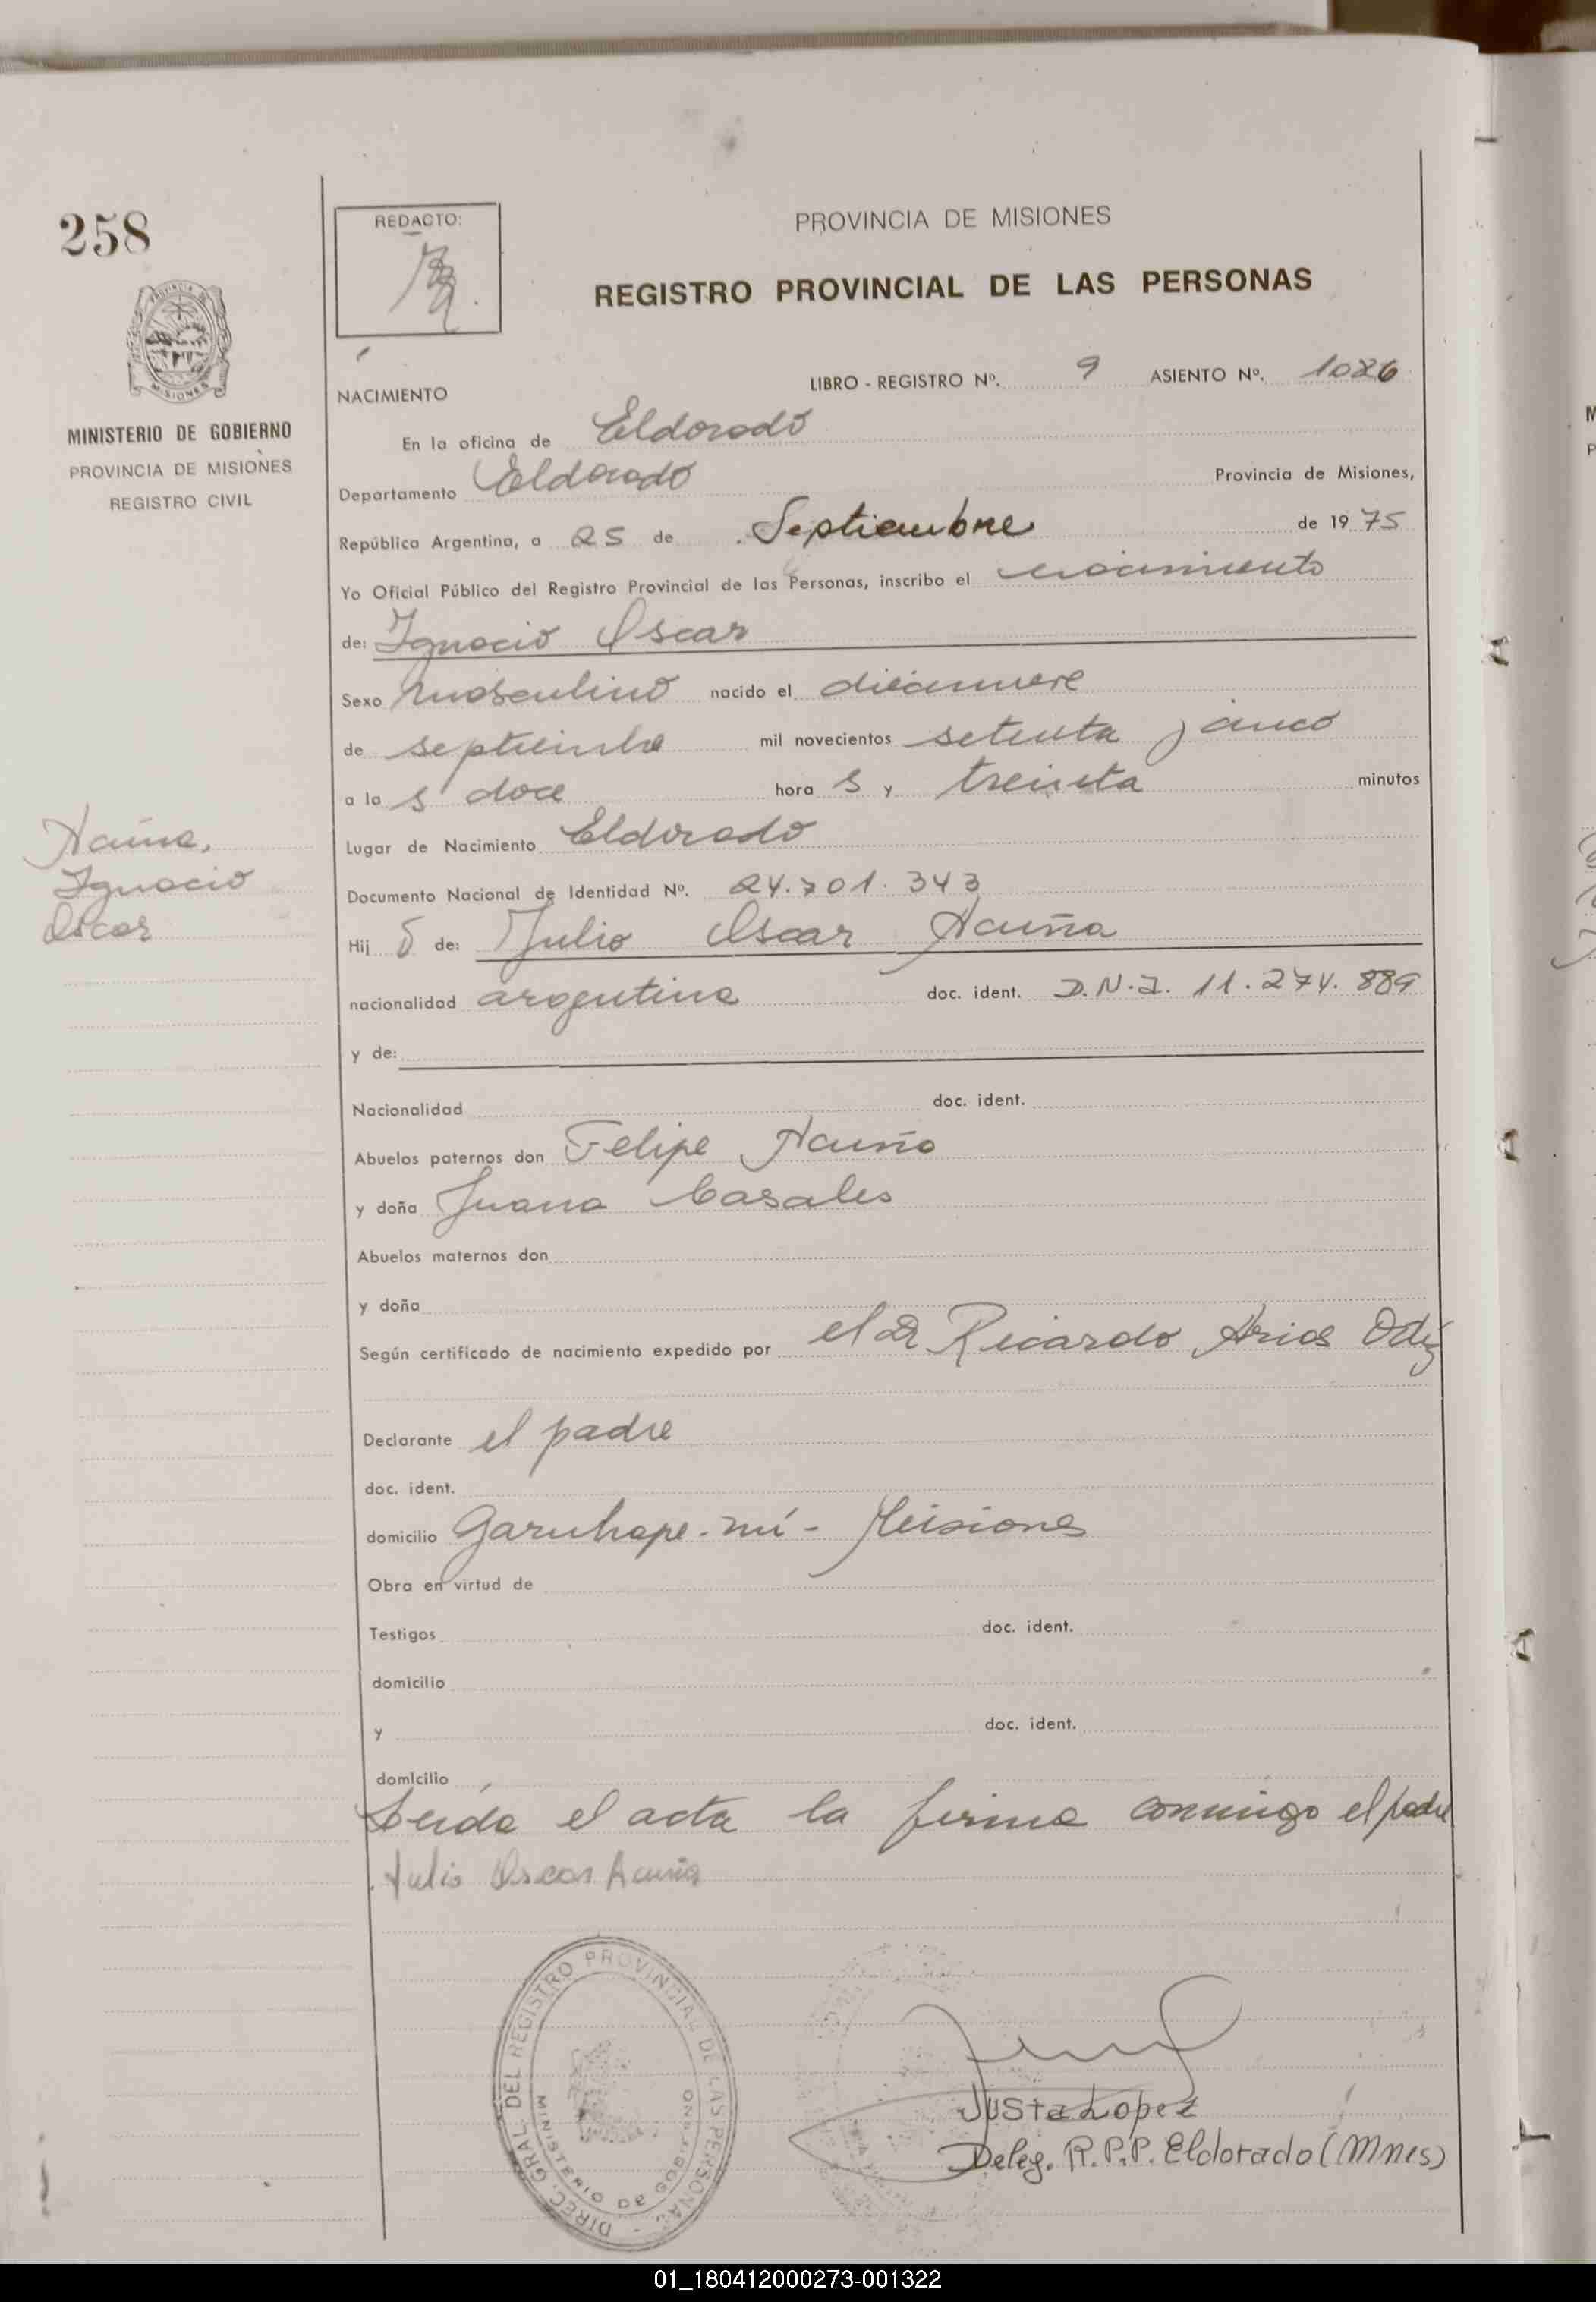 258
REDACTO:
PROVINCIA DE MISIONES
REGISTRO PROVINCIAL DE LAS PERSONAS
MISIONES
MINISTERIO DE GOBIERNO
PROVINCIA DE MISIONES
REGISTRO CIVIL
LIBRO - REGISTRO Nº. 9 ASIENTO Nº. 1026
NACIMIENTO
En la oficina de Eldorado
Departamento Eldorado Provincia de Misiones,
República Argentina, a 25 de Septiembre de 1975
Yo Oficial Público del Registro Provincial de las Personas, inscribo el nacimiento
de: Ignacio Oscar
Sexo masculino nacido el
de septiembre mil novecientos setenta y cinco
a la s doce hora s y treinta minutos
Lugar de Nacimiento Eldorado
Acuña,
Ignacio
Oscar
Documento Nacional de Identidad Nº. 24.701.343
Hij o de: Julio Oscar Acuña
nacionalidad argentina doc. ident. D.N.I. 11.274.889
y de:
Nacionalidad doc. ident.
Abuelos paternos don Felipe Acuña
y doña Juana Casales
Abuelos maternos don
y doña
Según certificado de nacimiento expedido por el Dr Ricardo Arias
Declarante el padre
doc. ident.
domicilio Garuhape-mí - Misiones
Obra en virtud de
Testigos doc. ident.
domicilio
y doc. ident.
domicilio
Leída el acta la firma conmigo el padre
Julio Oscar Acuña
DIREC. GRAL. DEL REGISTRO PROVINCIAL DE LAS PERSONAS
MINISTERIO DE GOBIERNO
Justa Lopez
Deleg. R.P.P. Eldorado (Mnes)
01_180412000273-001322